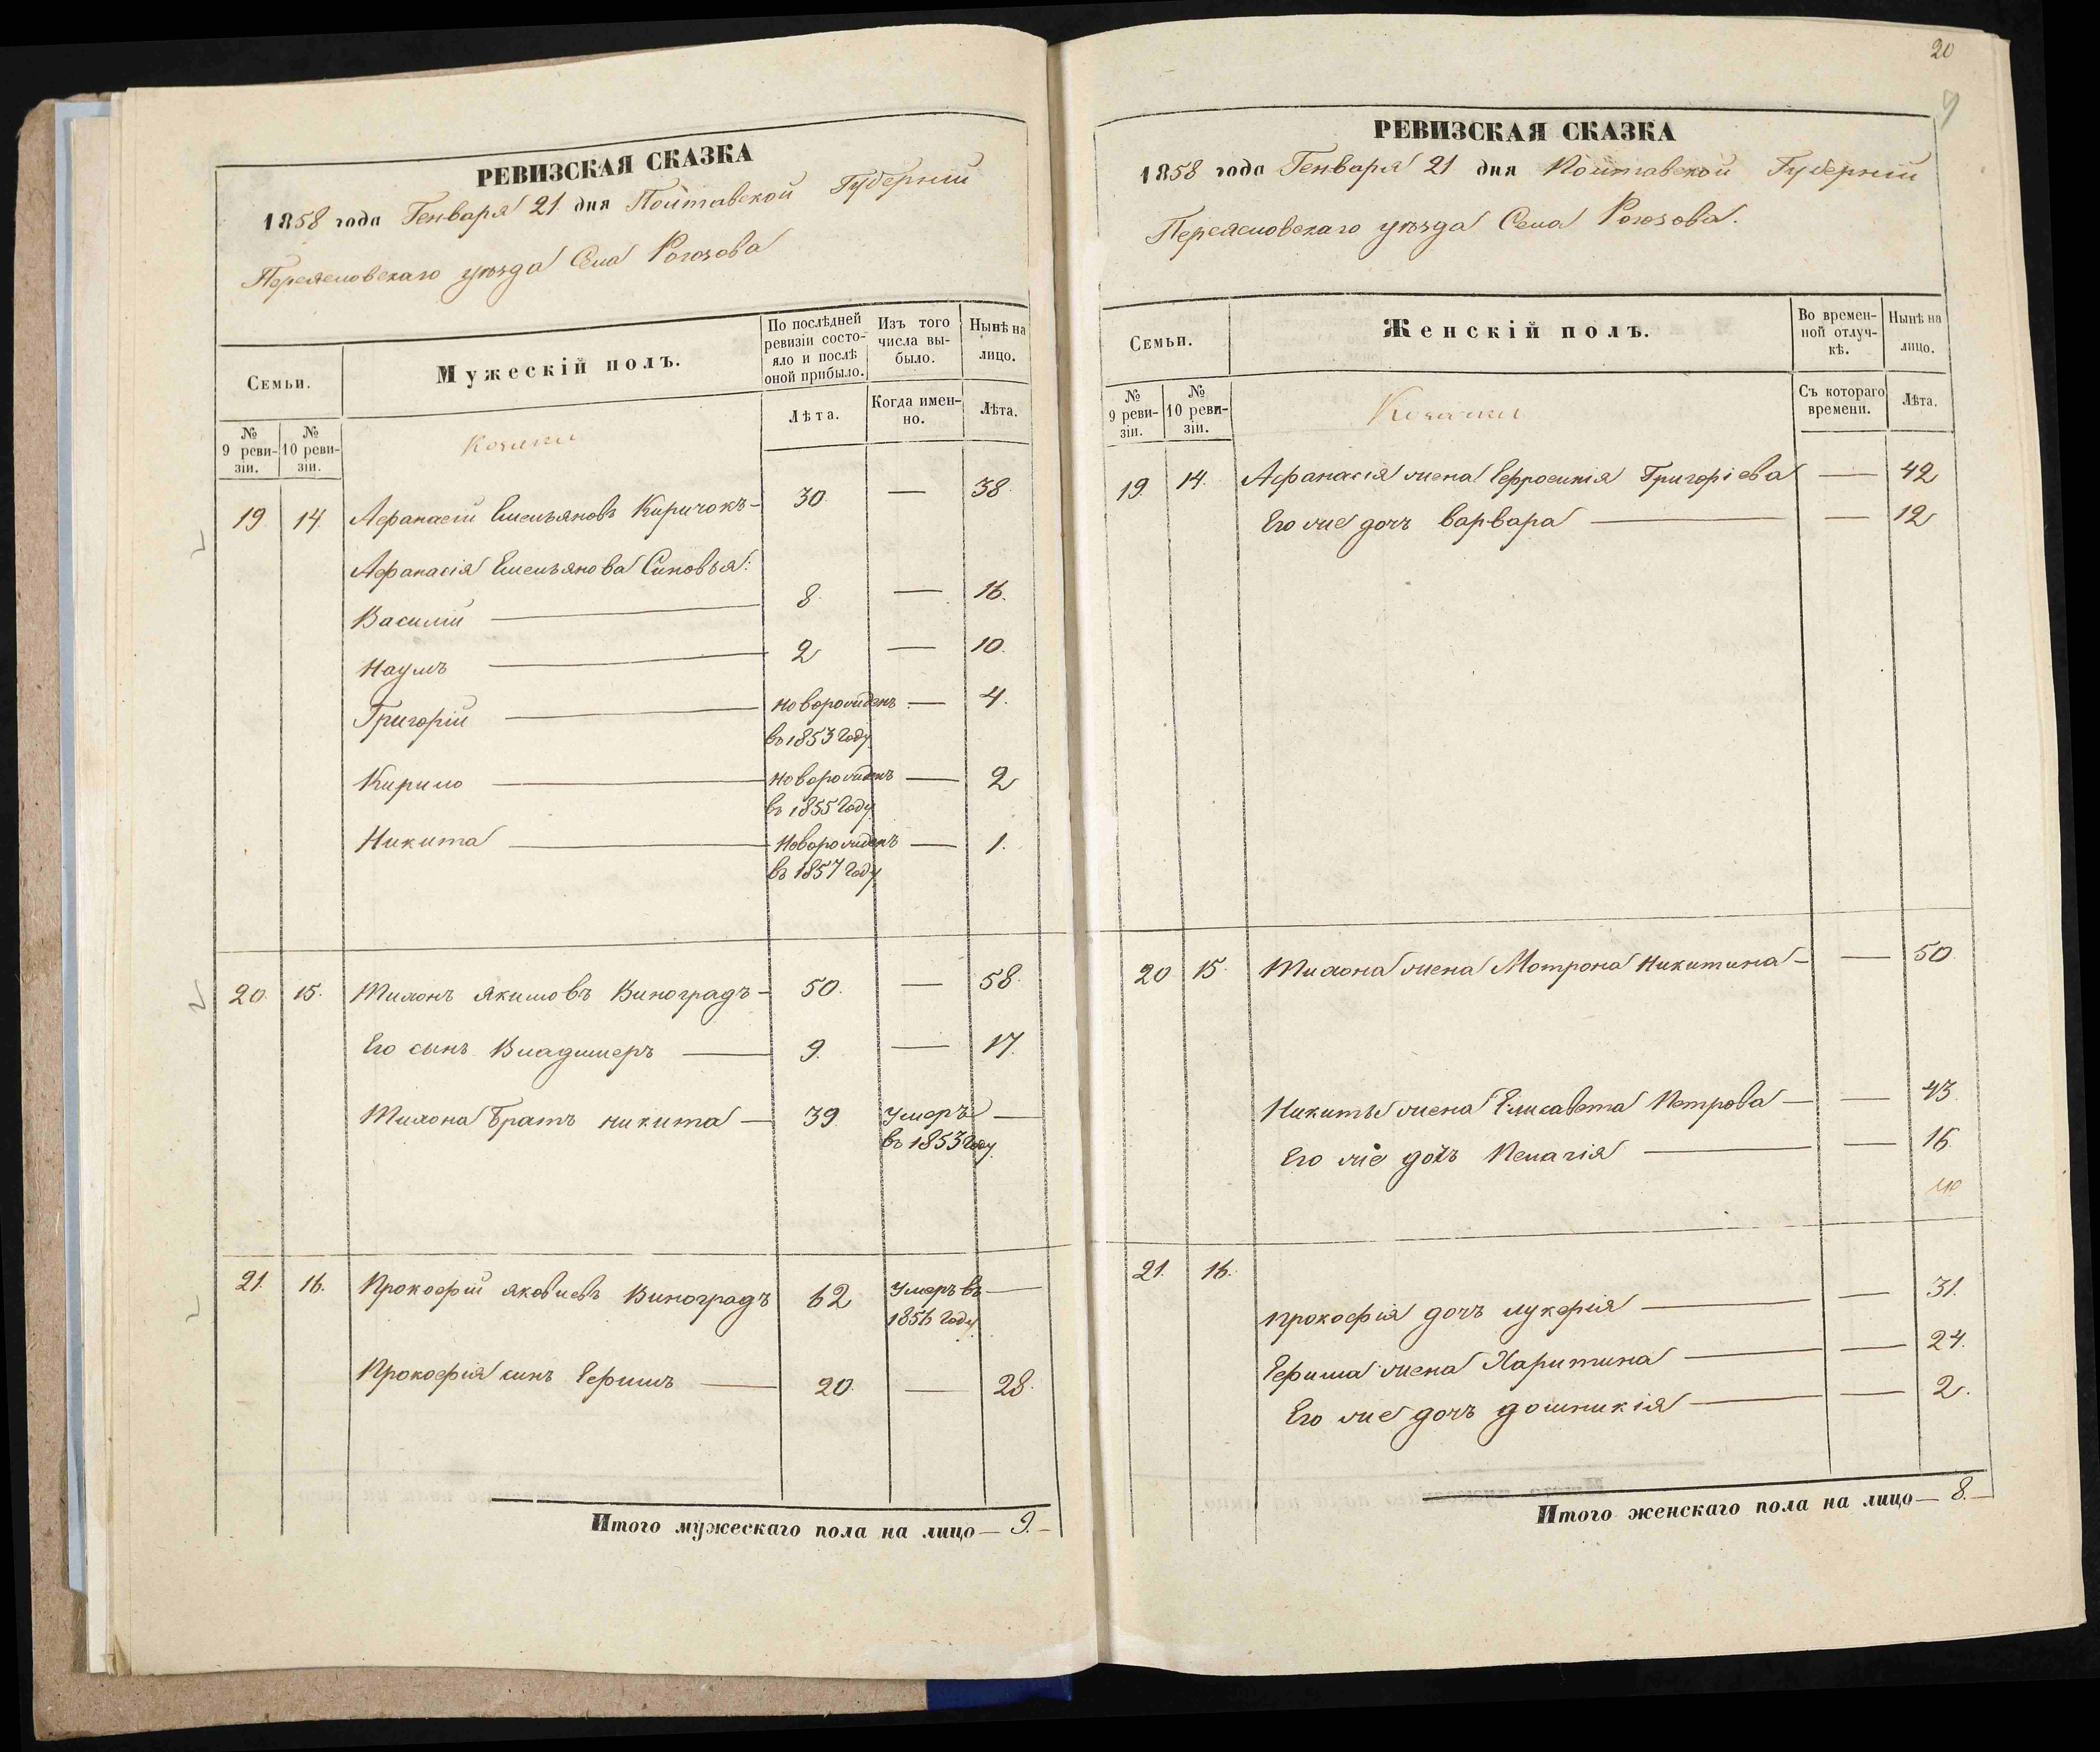 РЕВИЗСКАЯ СКАЗКА
1858 года Генваря 21 дня Полтавской Губерніи
Переясловскаго уѣзда Села Рогозова
Семьи.
Мужескій полъ.
По послѣдней ревизіи состояло и послѣ оной прибыло.
Изъ того числа выбыло.
Нынѣ на лицо.
№ 9 ревизіи.
№ 10 ревизіи.
Козаки
Лѣта.
Когда именно.
Лѣта.
19. 14. Афанасій Емельяновъ Киричокъ — 30. — 38.
Афанасія Емельянова Синовья:
Василій — 8. — 16.
Наумъ — 2 — 10.
Григорій — новорожденъ — 4.
въ 1853 году
Кирило — новорожденъ — 2
въ 1855 году
Никита — новорожденъ — 1.
въ 1857 году
20. 15. Милонъ Якимовъ Виноградъ — 50. — 58.
Его сынъ Владимеръ — 9. — 17.
Милона Братъ никита — 39. умеръ —
въ 1853 году
21. 16. Прокофій яковлевъ Виноградъ 62 умеръ въ —
1856 году
Прокофія синъ Ефимъ — 20. — 28.
Итого мужескаго пола на лицо — 9. —
20
9
РЕВИЗСКАЯ СКАЗКА
1858 года Генваря 21 дня Полтавской Губерніи
Переясловскаго уѣзда Села Рогозова.
Семьи.
Женскій полъ.
Во временной отлучкѣ.
Нынѣ на лицо.
№ 9 ревизіи.
№ 10 ревизіи.
Козачки
Съ котораго времени.
Лѣта.
19. 14. Афанасія жена Ефросинія Григоріева — 42
Его же дочъ варвара — — 12
20 15. Милона жена Мотрона Никитина — — 50
Никиты жена Елисавета Петрова — — 43
Его же дочъ Пелагія — — 16
21. 16.
прокофія дочъ лукерія — — 31.
Ефима жена Харитина — — 24.
Его же дочъ домникія — — 2.
Итого женскаго пола на лицо — 8. —